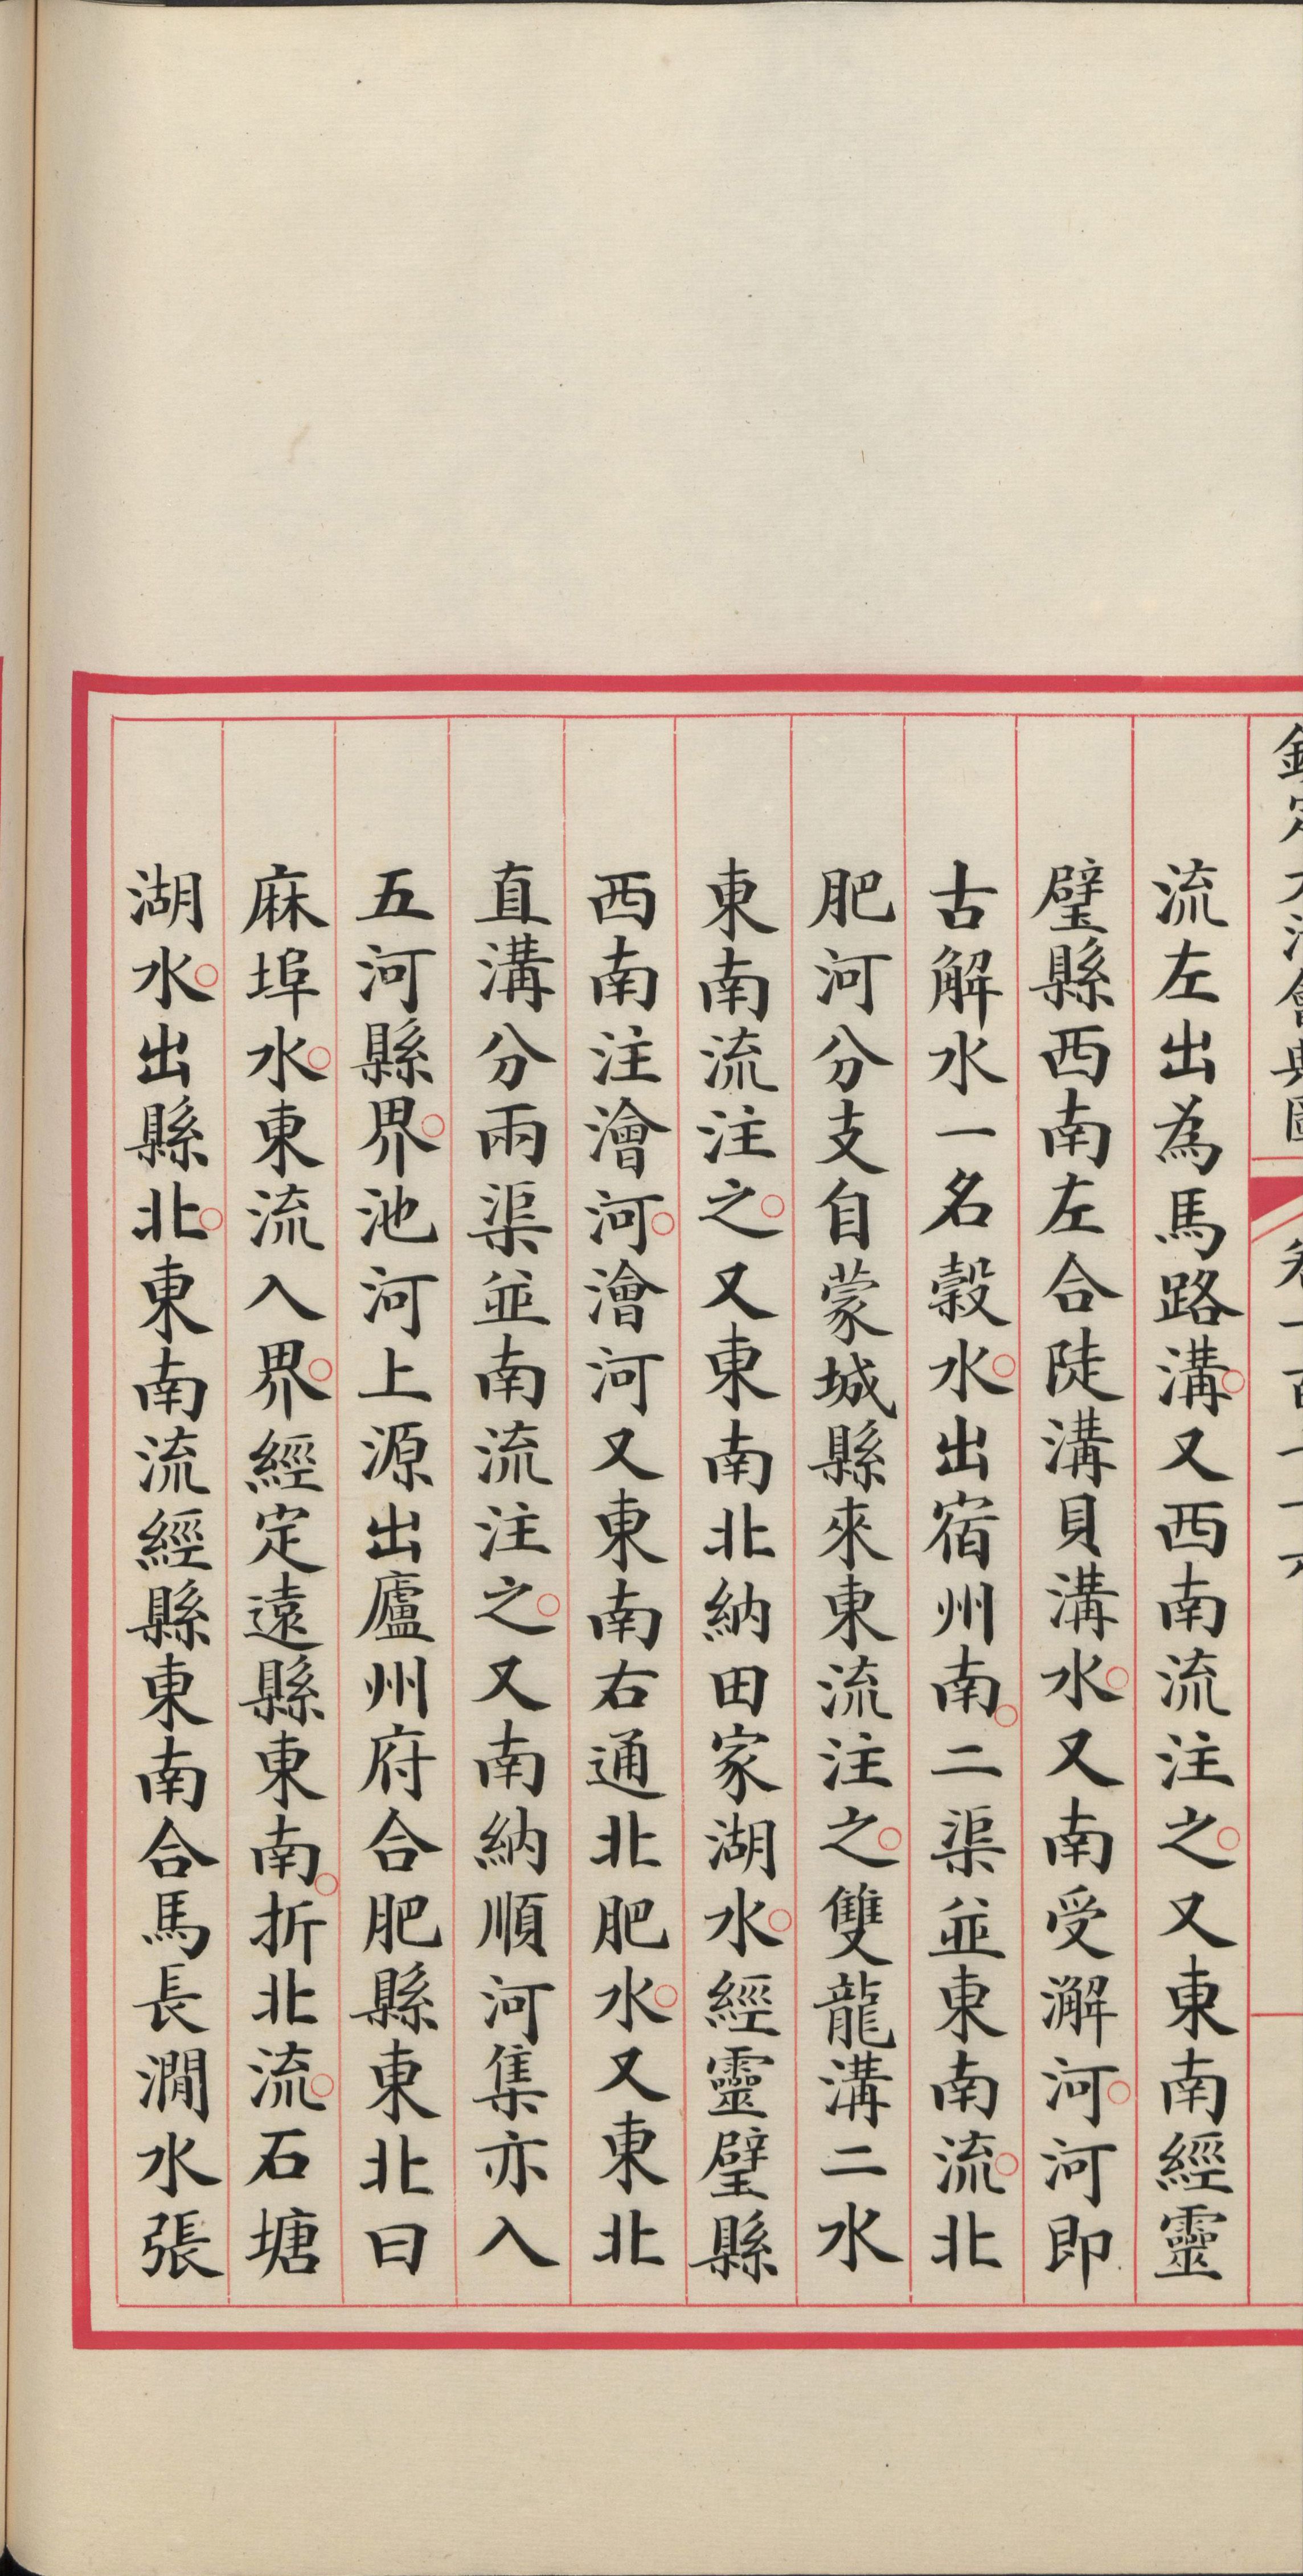 欽定大清會典圖 卷一百
流左出為馬路溝○又西南流注之○又東南經靈
璧縣西南左合陡溝貝溝水○又南受澥河○河即
古解水一名榖水○出宿州南○二渠並東南流○北
肥河分支自蒙城縣來東流注之○雙龍溝二水
東南流注之○又東南北納田家湖水○經靈璧縣
西南注澮河○澮河又東南右通北肥水○又東北
直溝分兩渠並南流注之○又南納順河集亦入
五河縣界○池河上源出廬州府合肥縣東北曰
麻埠水○東流入界○經定遠縣東南○折北流○石塘
湖水○出縣北○東南流經縣東南合馬長澗水張